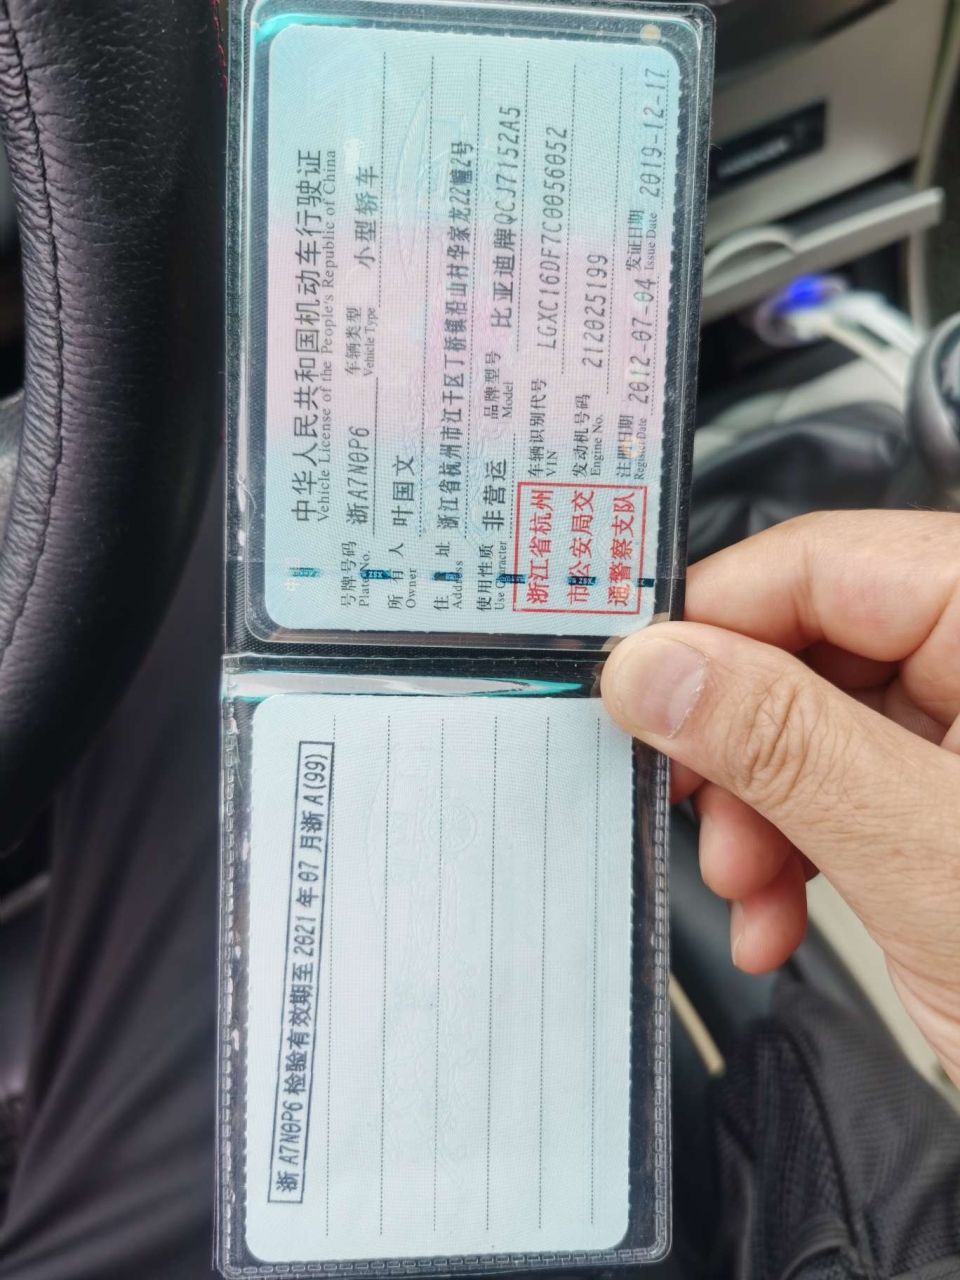 中华人民共和国机动车行驶证
Vehicle License of the People's Republic of China
号牌号码 浙A7N0P6 车辆类型 小型轿车
Plate No. Vehicle Type
所有人 叶国文
Owner
住址 浙江省杭州市江干区丁桥镇沿山村华家龙22幢2号
Address
使用性质 非营运 品牌型号 比亚迪牌QCJ7152A5
Use Character Model
浙江省杭州
市公安局交
通警察支队
车辆识别代号 LGXC16DF7C0056052
VIN
发动机号码 212025199
Engine No.
注册日期 2012-07-04 发证日期 2019-12-17
Register Date Issue Date
浙A7N0P6检验有效期至2021年07月浙A(99)